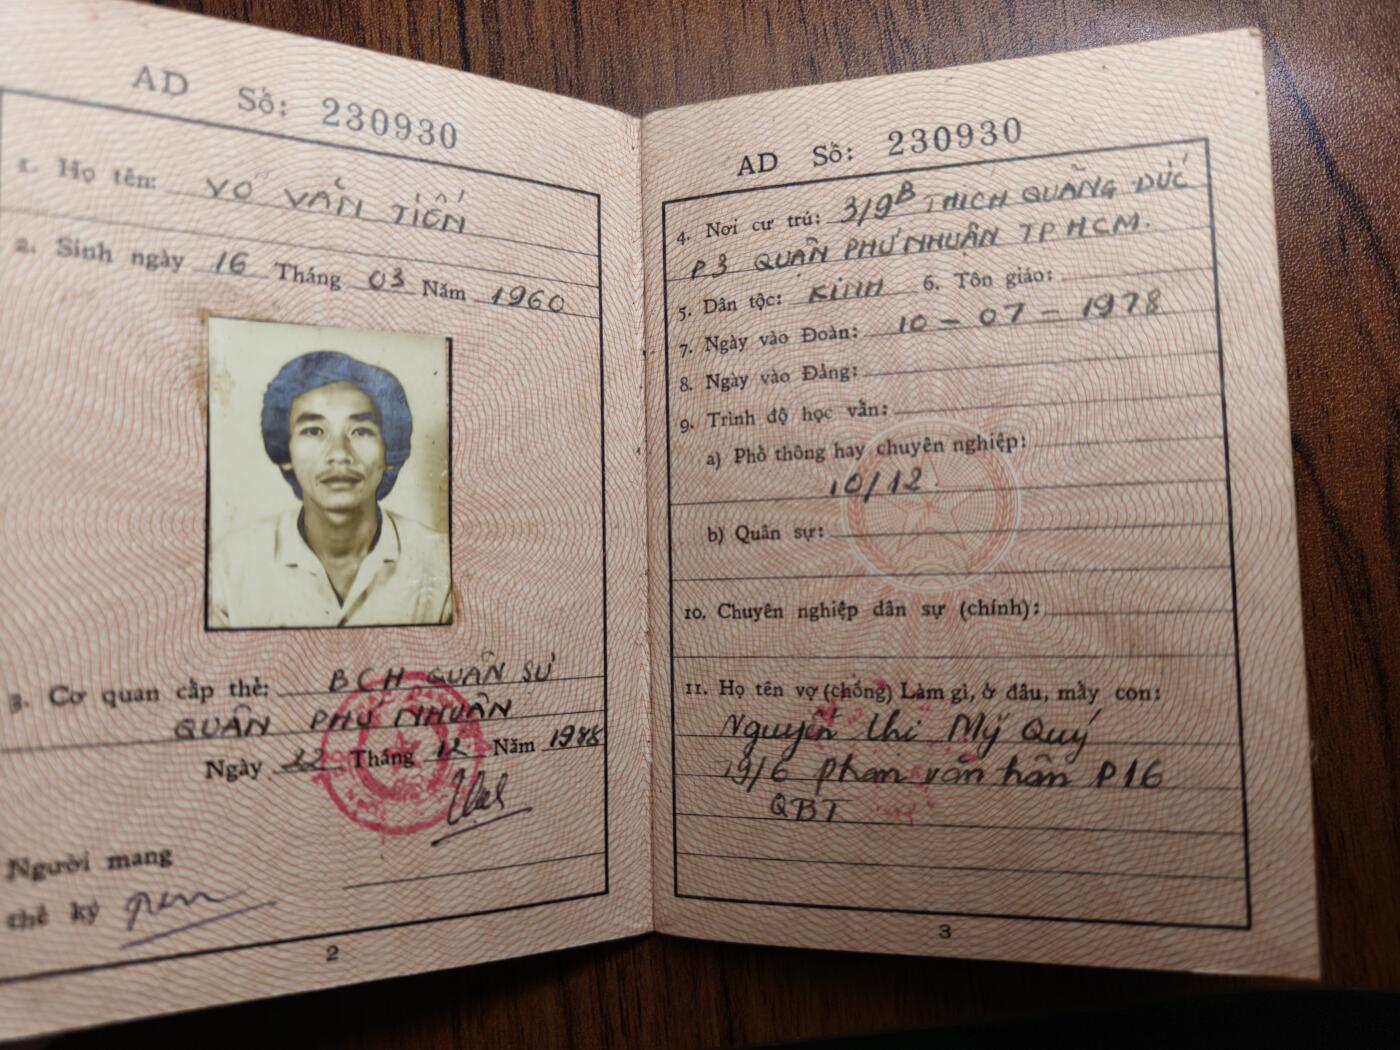 AD Số: 230930
1. Họ tên: VÕ VĂN TIẾN
2. Sinh ngày 16 Tháng 03 Năm 1960
3. Cơ quan cấp thẻ: BCH QUÂN SỰ
QUẬN PHÚ NHUẬN
Ngày 22 Tháng 12 Năm 1988
Người mang
thẻ ký
2
AD Số: 230930
4. Nơi cư trú: 3/9B THÍCH QUẢNG ĐỨC
P3 QUẬN PHÚ NHUẬN TP HCM.
5. Dân tộc: KINH 6. Tôn giáo:
7. Ngày vào Đoàn: 10 - 07 - 1978
8. Ngày vào Đảng:
9. Trình độ học vấn:
a) Phổ thông hay chuyên nghiệp:
10/12.
b) Quân sự:
10. Chuyên nghiệp dân sự (chính):
11. Họ tên vợ (chồng) Làm gì, ở đâu, mấy con:
Nguyễn thi Mỹ Quý
19/6 phan văn hân P16
QBT
3